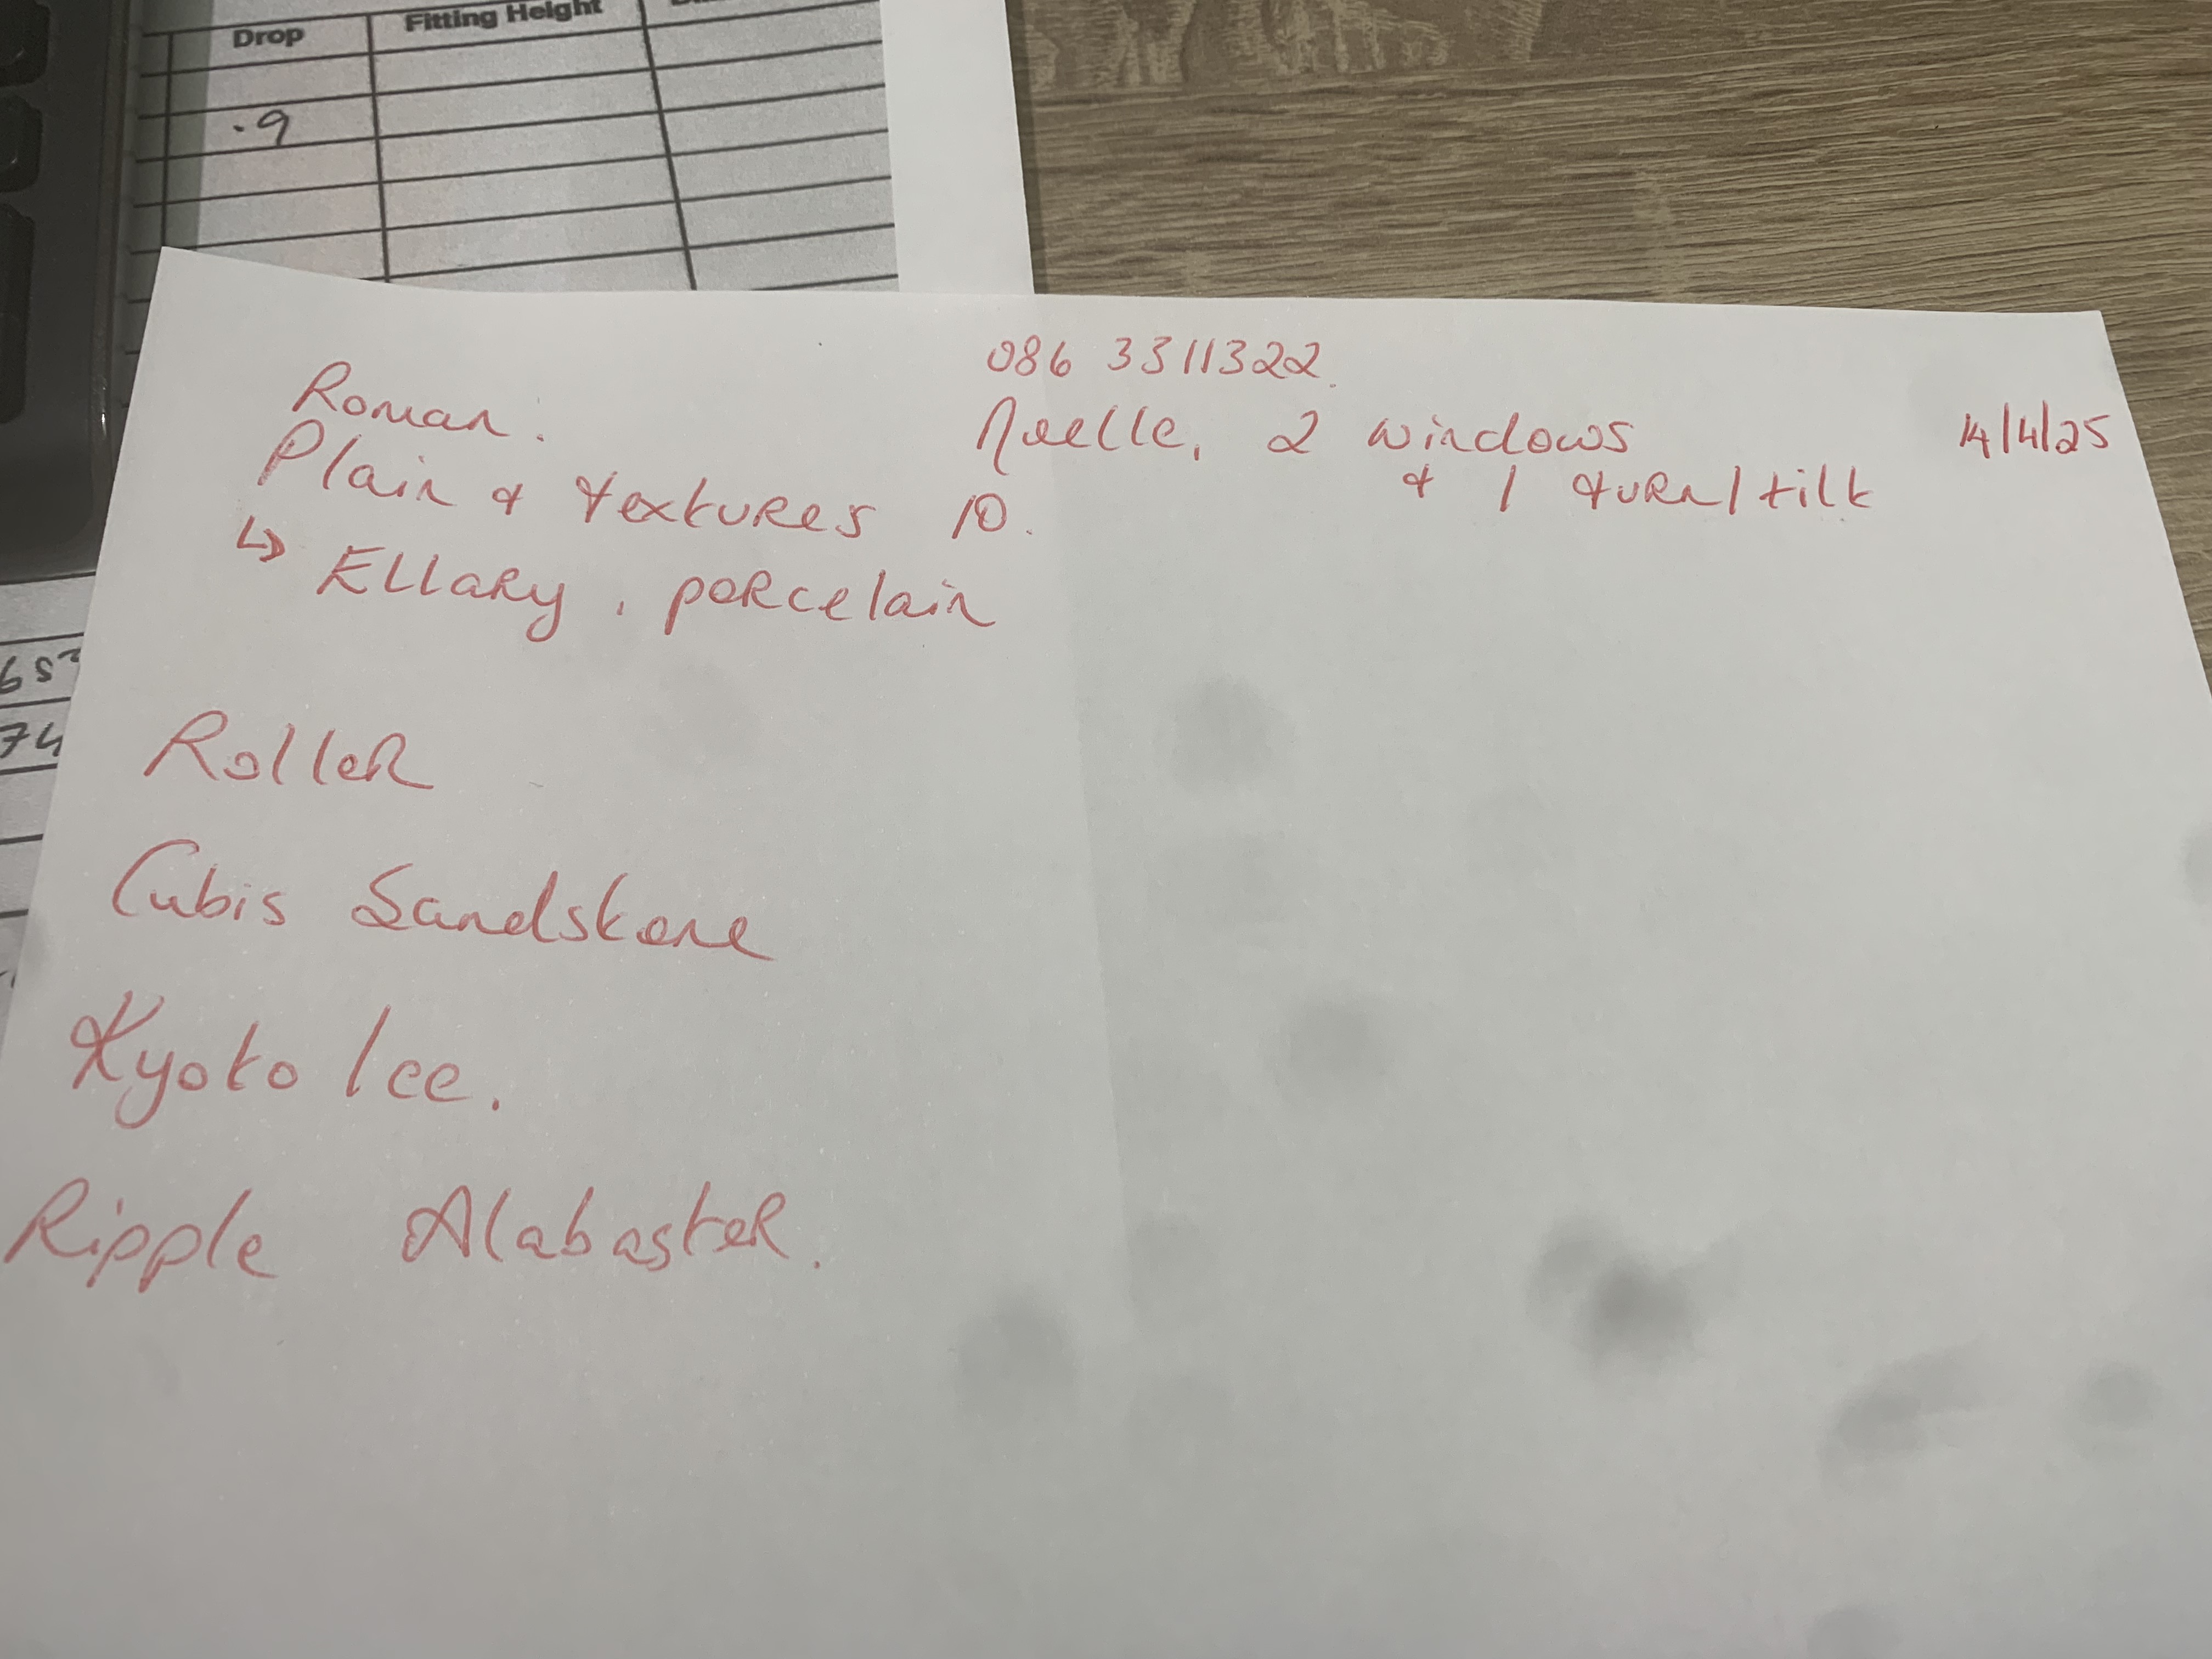 Drop
Fitting Height
.9
65
74
086 3311322.
Noelle, 2 windows
& 1 turn/tilt
14/4/25
Roman.
Plain & textures 10.
↳ Ellary, porcelain
Roller
Cubis Sandstone
Kyoto Ice.
Ripple Alabaster.